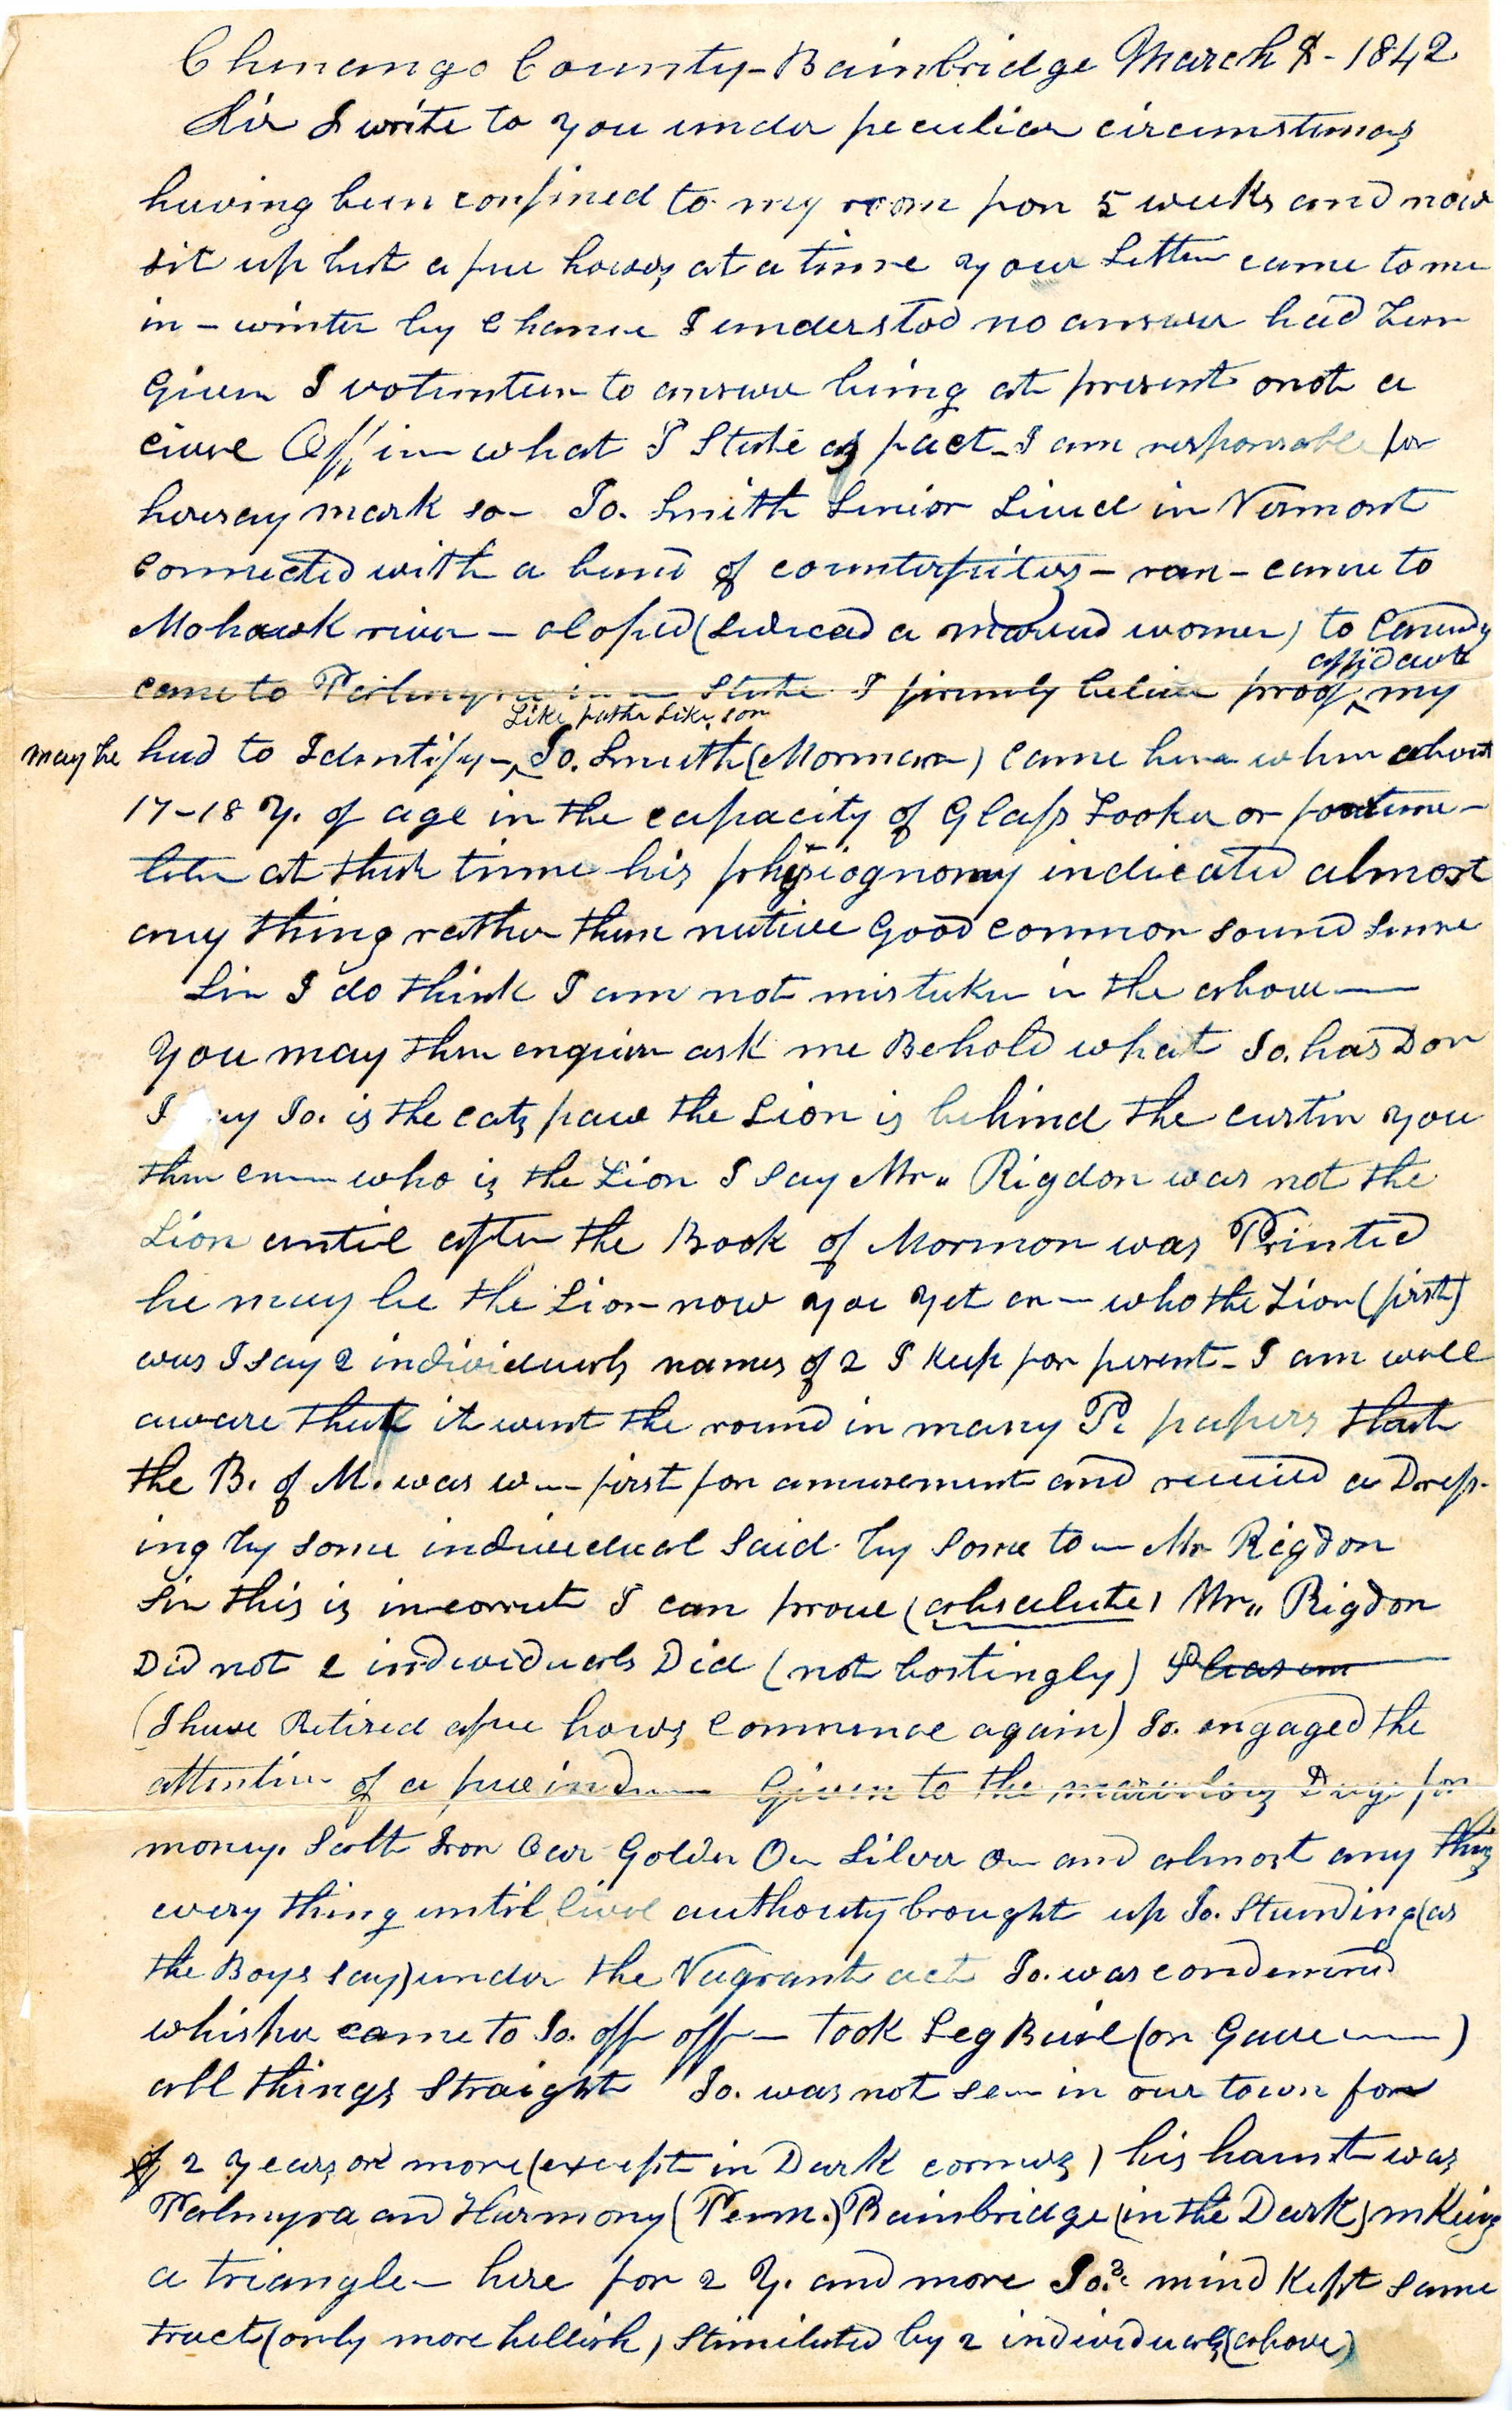 Chenango County - Bainbridge March 8 - 1842
Sir I write to you under peculiar circumstances
having been confined to my room for 5 weeks and now
sit up but a few hours at a time your Letter came to me
in - winter by Chance I understod no answer had been
Given I volunteer to answer being at present not a
civil Officer what I State as fact - I am responsable for
heresay mark so - Jo. Smith Senior Lived in Vermont
Connected with a band of counterfeiters - ran - came to
Mohawk river - eloped (seduced a maried women) to Canady
came to Palmyra in State I firmly believe proof my
affidavit
Like father Like son
may be had to Identify - Jo. Smith (Morman) came here when about
17-18 Y. of age in the capacity of Glass Looker or fortune -
teler at that time his physiognomy indicated almost
any thing rather than native Good common sound sense
Sir I do think I am not mistaken in the above
You may then enquire ask me Behold what Jo. has Don
I ay Jo. is the cats paw the Lion is behind the curtin you
then en who is the Lion I say Mr. Rigdon was not the
Lion until after the Book of Mormon was Printed
he may be the Lion now you yet en - who the Lion (first)
was I say 2 individuals names of 2 I keep for present - I am well
aware that it went the round in many P. papers that
the B. of M. was w first for amusement and received a Dress-
ing by some individual said by some to Mr Rigdon
Sir this is incorrect I can prove (absalute) Mr. Rigdon
Did not 2 individuals Did (not bostingly)
(I have Retired a few hours commence again) Jo. engaged the
attention of a few ind Given to the marvelous Duge for
money. Salt Iron Oar Golden Oar Silver Oar and almost any thing
every thing until Civil authority brought up Jo. Standing (as
the Boys say) under the Vagrant act Jo. was condemned
whisper came to Jo. off off - took Leg Bail (or Gave )
all things Straight Jo. was not seen in our town for
2 Years or more (except in Dark corners) his haunt was
Palmyra and Harmony (Penn.) Bainbridge (in the Dark) mking
a triangle - here for 2 Y. and more Jo.s mind Kept same
tract (only more hellish) Stimilated by 2 individuals (above)